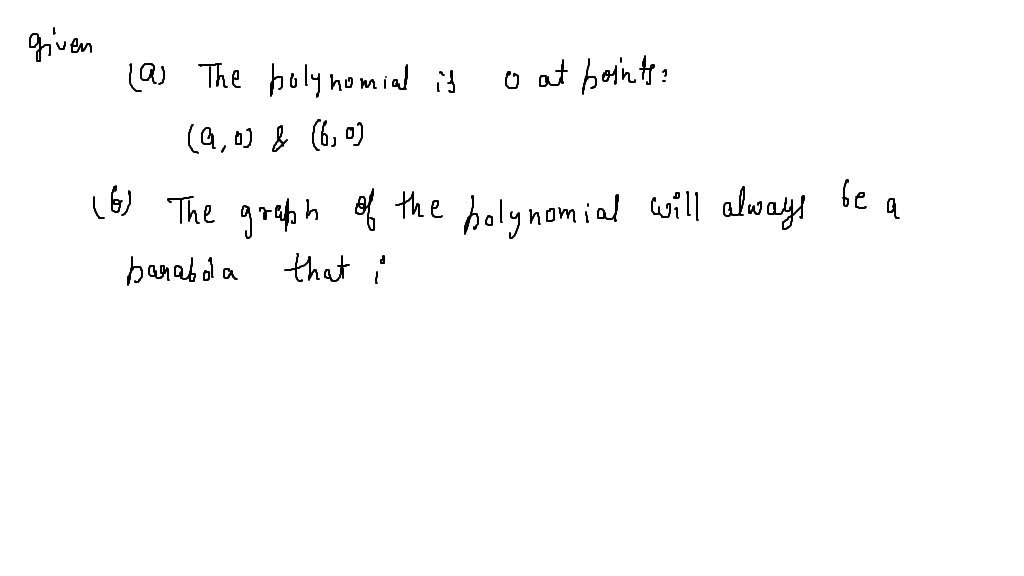 given
(a) The polynomial is 0 at points:
(a, 0) & (b, 0)
(b) The graph of the polynomial will always be a
parabola that i